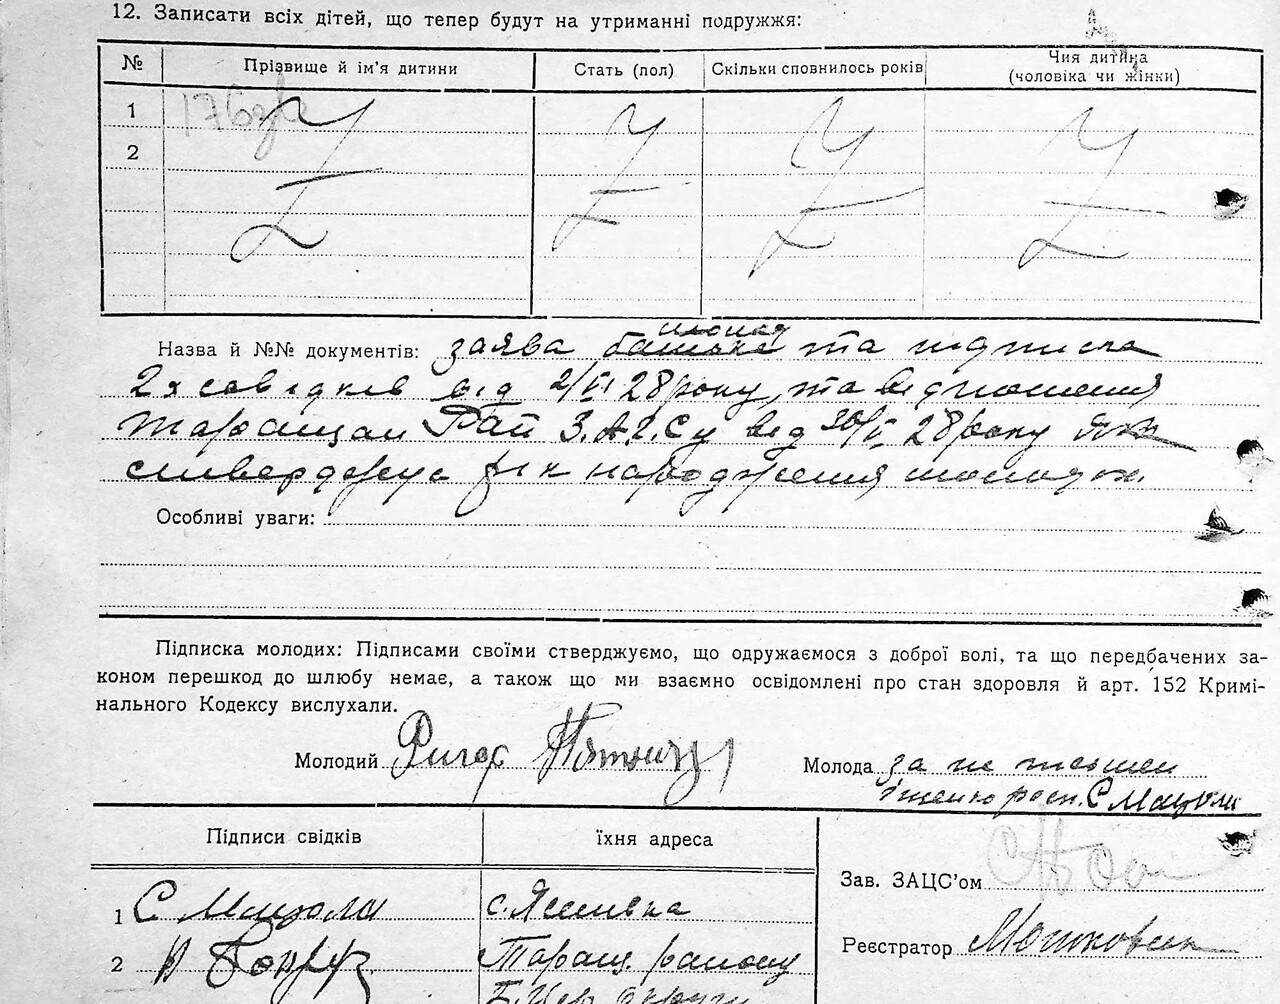 12. Записати всіх дітей, що тепер будут на утриманні подружжя:
№ Прізвище й ім'я дитини Стать (пол) Скільки сповнилось років Чия дитина
(чоловіка чи жінки)
1
2
молод
Назва й №№ документів: заява батька та підписка
2х свідків від 2/VI 28 року, та відношення
Таращан Рай З.А.Г.Су від 30/V 28 року як
стверджує рік народження молодої.
Особливі уваги:
Підписка молодих: Підписами своїми стверджуємо, що одружаємося з доброї волі, та що передбачених за-
коном перешкод до шлюбу немає, а також що ми взаємно освідомлені про стан здоровля й арт. 152 Кримі-
нального Кодексу вислухали.
Молодий Ригор Молода за не письмен
росп. С Мацола
Підписи свідків їхня адреса
Зав. ЗАЦС'ом
1 С Мацола с. Яшивка
Реєстратор Мошкович
2 Таращ. району
Б.Цер. Округи